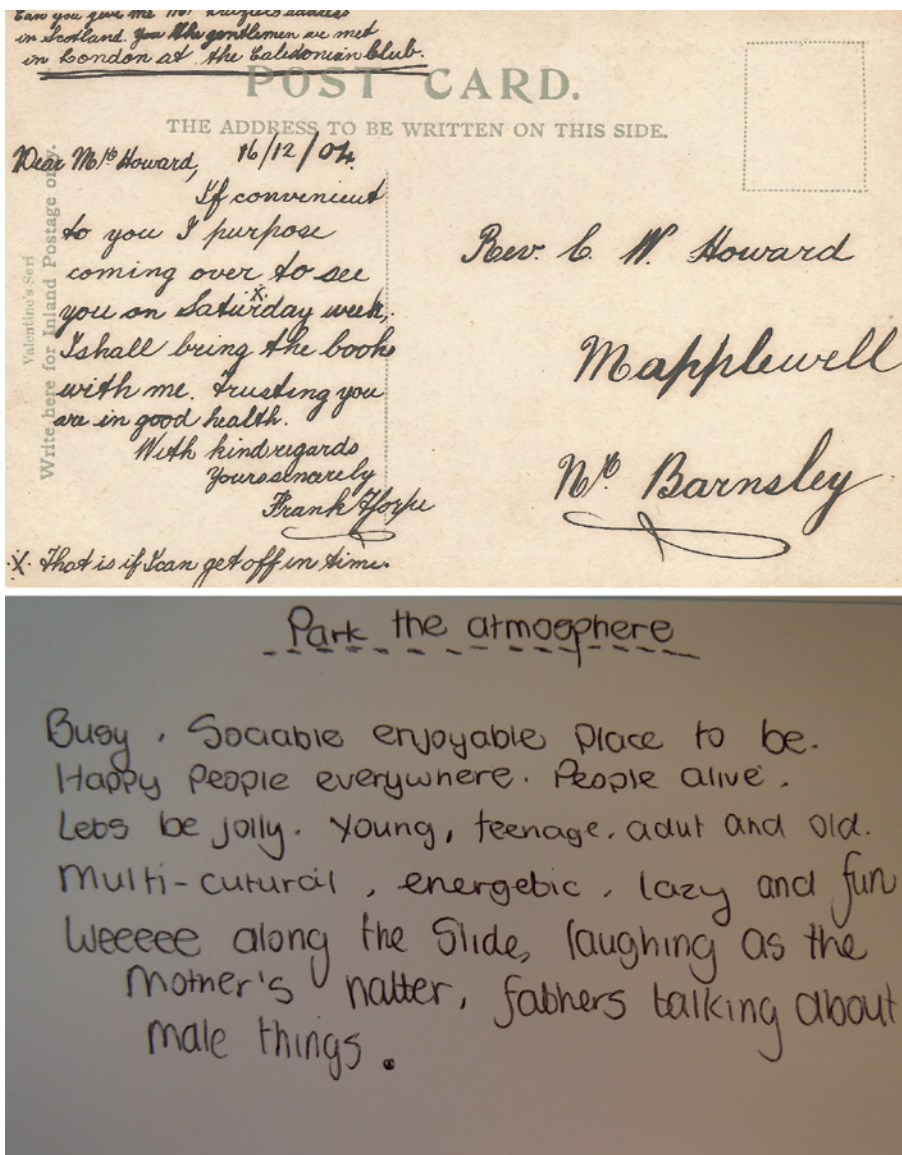 Can you give me Mr address
in Scotland. You the gentlemen we met
in London at the Caledonian Club.
POST CARD.
THE ADDRESS TO BE WRITTEN ON THIS SIDE.
Valentine's Seri
Write here for Inland Postage only.
Dear Mr Howard, 16/12/04.
If convenient
to you I purpose
coming over to see
you on Saturday x week,
I shall bring the book
with me. Trusting you
are in good health.
With kind regards
Yours sincerely
Frank Thorpe
X. That is if I can get off in time.
Rev. C. W. Howard
Mapplewell
Nr Barnsley
Park the atmosphere
Busy, Sociable enjoyable place to be.
Happy People everywhere. People alive.
Lets be jolly. Young, teenage, adut and old.
Multi-cutural, energetic, lazy and fun
Weeeee along the Slide, laughing as the
Mother's natter, fathers talking about
male things.